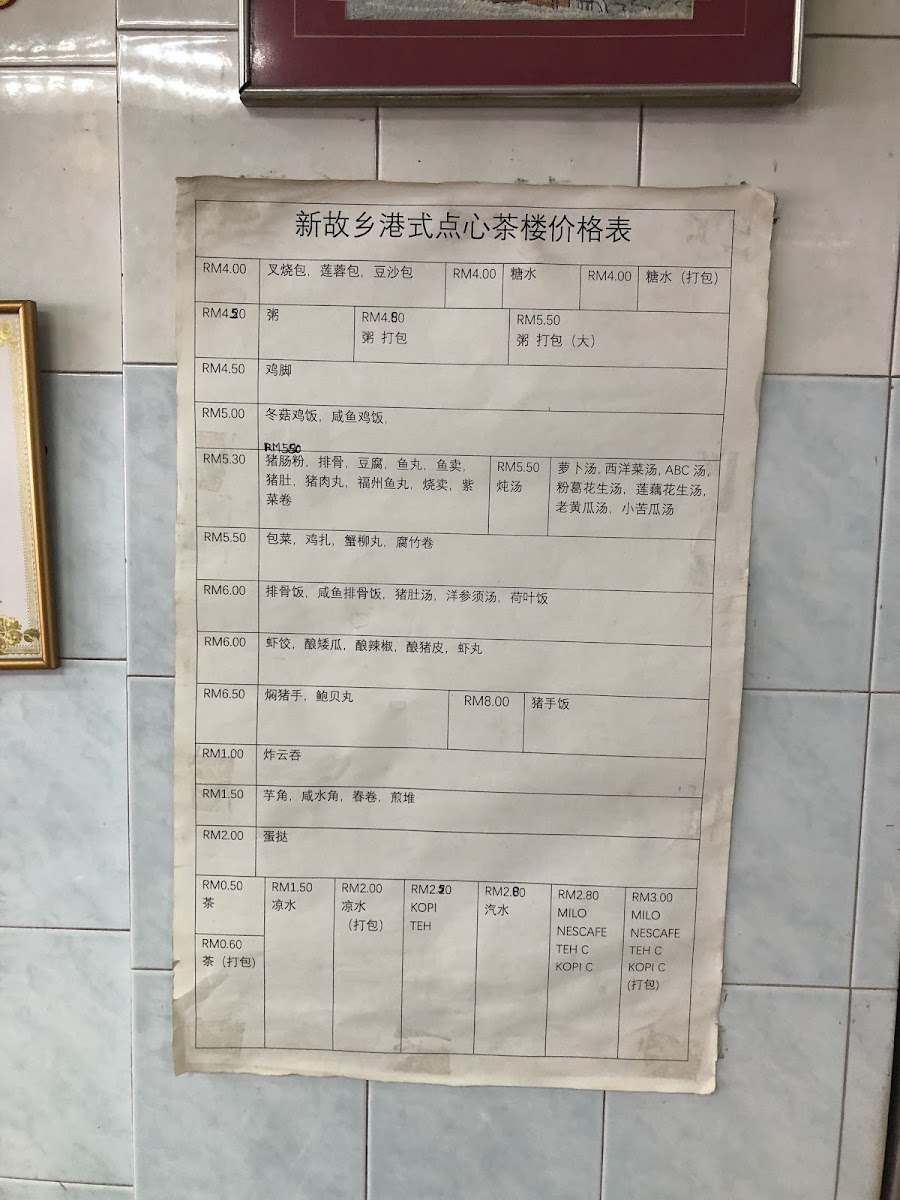 新故乡港式点心茶楼价格表
RM4.00 叉烧包, 莲蓉包, 豆沙包 RM4.00 糖水 RM4.00 糖水（打包）
RM4.50 粥
RM4.80
粥 打包
RM5.50
粥 打包（大）
RM4.50 鸡脚
RM5.00 冬菇鸡饭, 咸鱼鸡饭,
RM5.50
RM5.30 猪肠粉, 排骨, 豆腐, 鱼丸, 鱼卖,
猪肚, 猪肉丸, 福州鱼丸, 烧卖, 紫
菜卷
RM5.50
炖汤
萝卜汤, 西洋菜汤, ABC 汤,
粉葛花生汤, 莲藕花生汤,
老黄瓜汤, 小苦瓜汤
RM5.50 包菜, 鸡扎, 蟹柳丸, 腐竹卷
RM6.00 排骨饭, 咸鱼排骨饭, 猪肚汤, 洋参须汤, 荷叶饭
RM6.00 虾饺, 酿矮瓜, 酿辣椒, 酿猪皮, 虾丸
RM6.50 焖猪手, 鲍贝丸 RM8.00 猪手饭
RM1.00 炸云吞
RM1.50 芋角, 咸水角, 春卷, 煎堆
RM2.00 蛋挞
RM0.50
茶
RM0.60
茶（打包）
RM1.50
凉水
RM2.00
凉水
（打包）
RM2.50
KOPI
TEH
RM2.80
汽水
RM2.80
MILO
NESCAFE
TEH C
KOPI C
RM3.00
MILO
NESCAFE
TEH C
KOPI C
(打包)